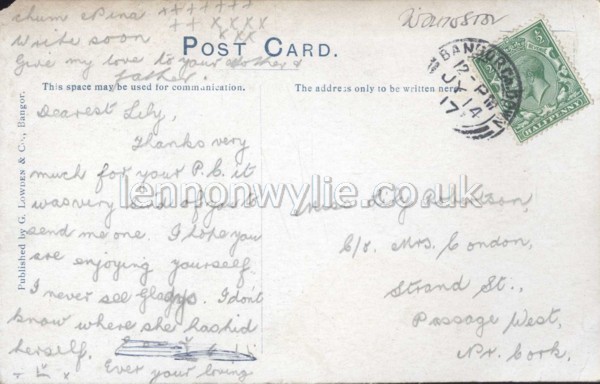 chum Rina +++++++
++ xxxx
Write soon xxx
Give my love to your Mother &
Father.
POST CARD.
This space may be used for communication.
The address only to be written here.
BANGOR CO. DOWN
12 PM
JY 14
17
HALFPENNY
Published by G. Lowden & Co., Bangor.
Dearest Lily,
Thanks very
much for your P.C. it
was very kind of you to
send me one. I hope you
are enjoying yourself.
I never see Gladys. I don't
know where she has hid
herself.
Ever your loving
Miss Lily
C/o. Mrs. Condon,
Strand St.,
Passage West,
Nr. Cork.
lennonwylie.co.uk